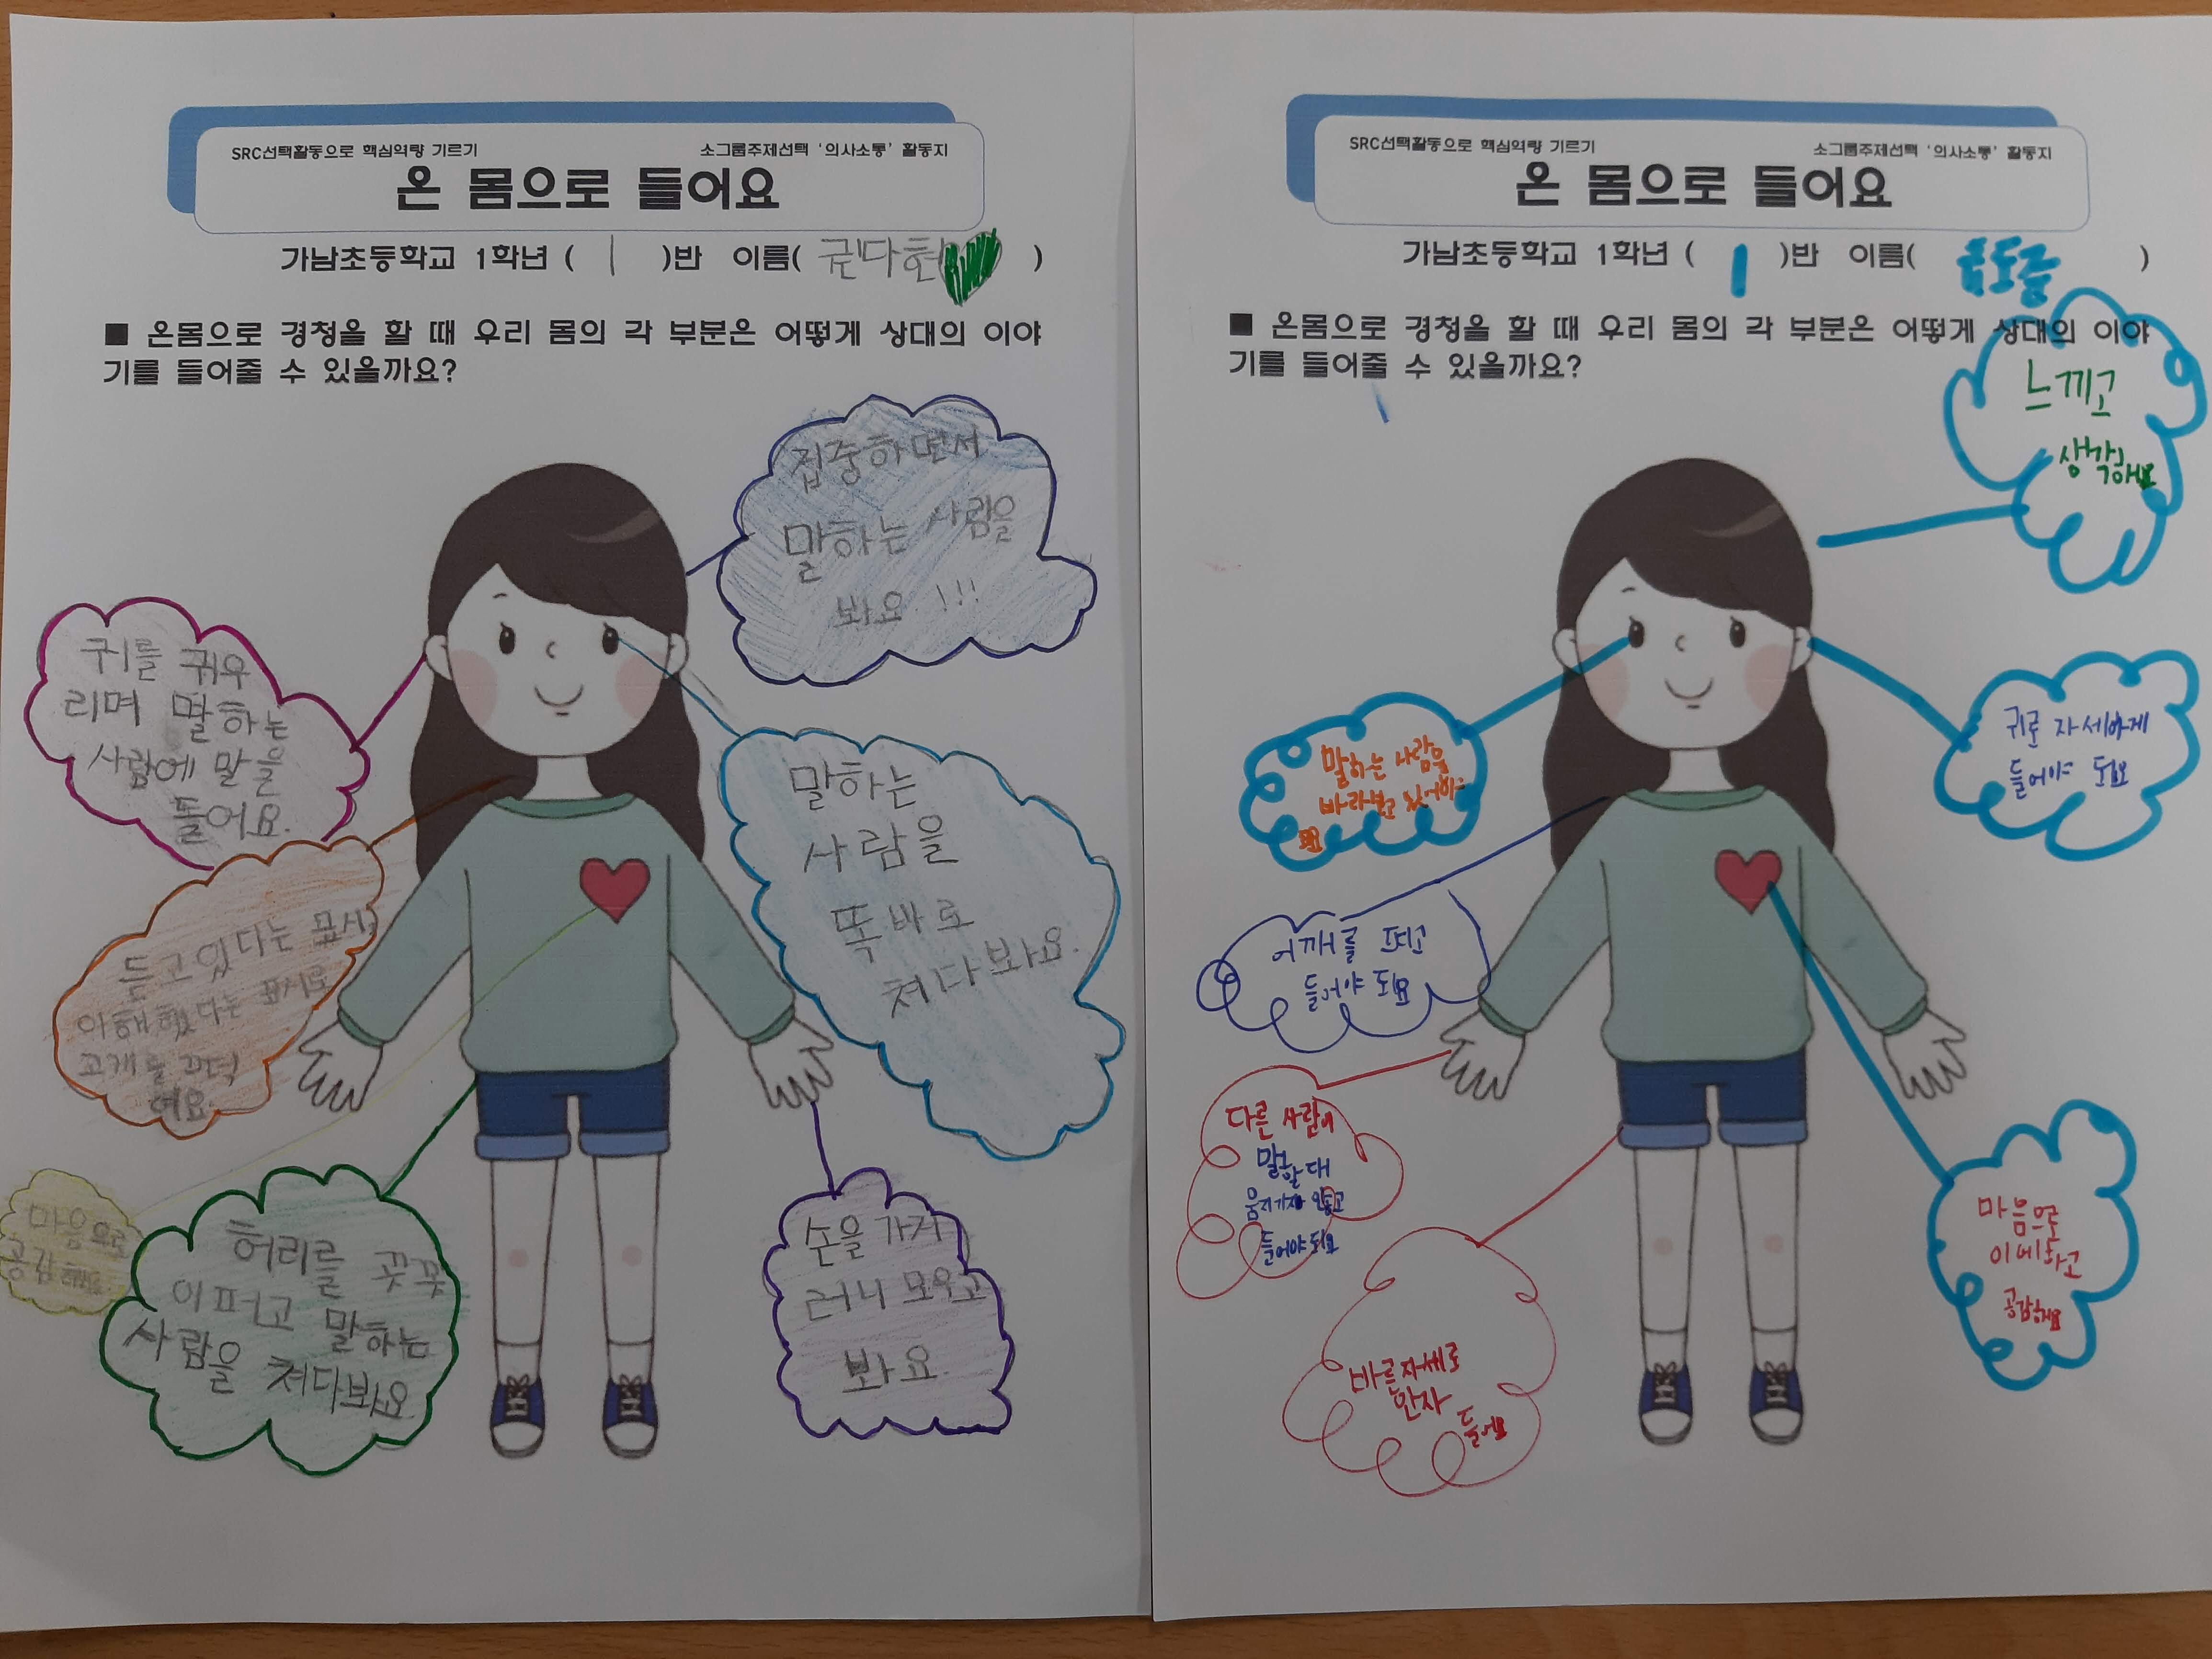 SRC선택활동으로 핵심역량 기르기
소그룹주제선택 '의사소통' 활동지
온 몸으로 들어요
가남초등학교 1학년 ( 1 )반 이름( 권다현 )
■ 온몸으로 경청을 할 때 우리 몸의 각 부분은 어떻게 상대의 이야
기를 들어줄 수 있을까요?
집중하면서
말하는 사람을
봐요!!!
귀를 귀우
리며 말하는
사람에 말을
들어요.
말하는
사람을
똑바로
쳐다봐요.
듣고있다는 표시,
이해했다는 표시로
고개를 끄덕
여요.
마음으로
공감해요
허리를 꼿꼿
이펴고 말하는
사람을 쳐다봐요
손을 가지
러니 모으고
봐요.
SRC선택활동으로 핵심역량 기르기
소그룹주제선택 '의사소통' 활동지
온 몸으로 들어요
가남초등학교 1학년 ( 1 )반 이름( )
■ 온몸으로 경청을 할 때 우리 몸의 각 부분은 어떻게 상대의 이야
기를 들어줄 수 있을까요?
느끼고
생각해요
말하는 사람을
바라보고 있어야
되요
귀로 자세하게
들어야 되요
어깨를 펴고
들어야 되요
다른 사람이
말할 대
움지기지 안고
들어야 되요
마음으로
이해하고
공감해요
바른자세로
안자
들어요